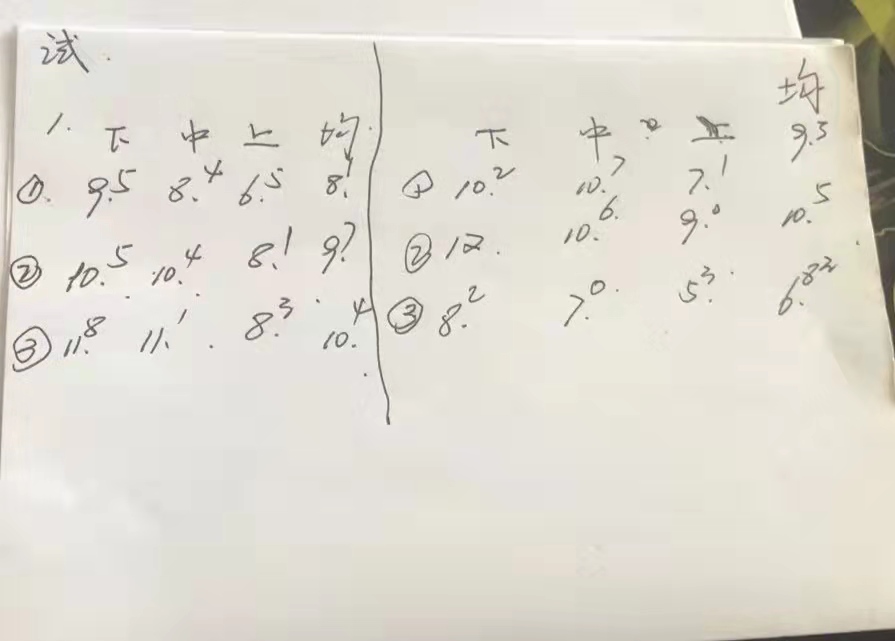 试.
1. 下 中 上 均.
① 9.5 8.4 6.5 8.1
② 10.5 10.4 8.1 9.7
③ 11.8 11.1 8.3 10.4
下 中 上 均
① 10.2 10.7 7.1 9.3
② 12. 10.6 9.0 10.5
③ 8.2 7.0 5.3 6.83